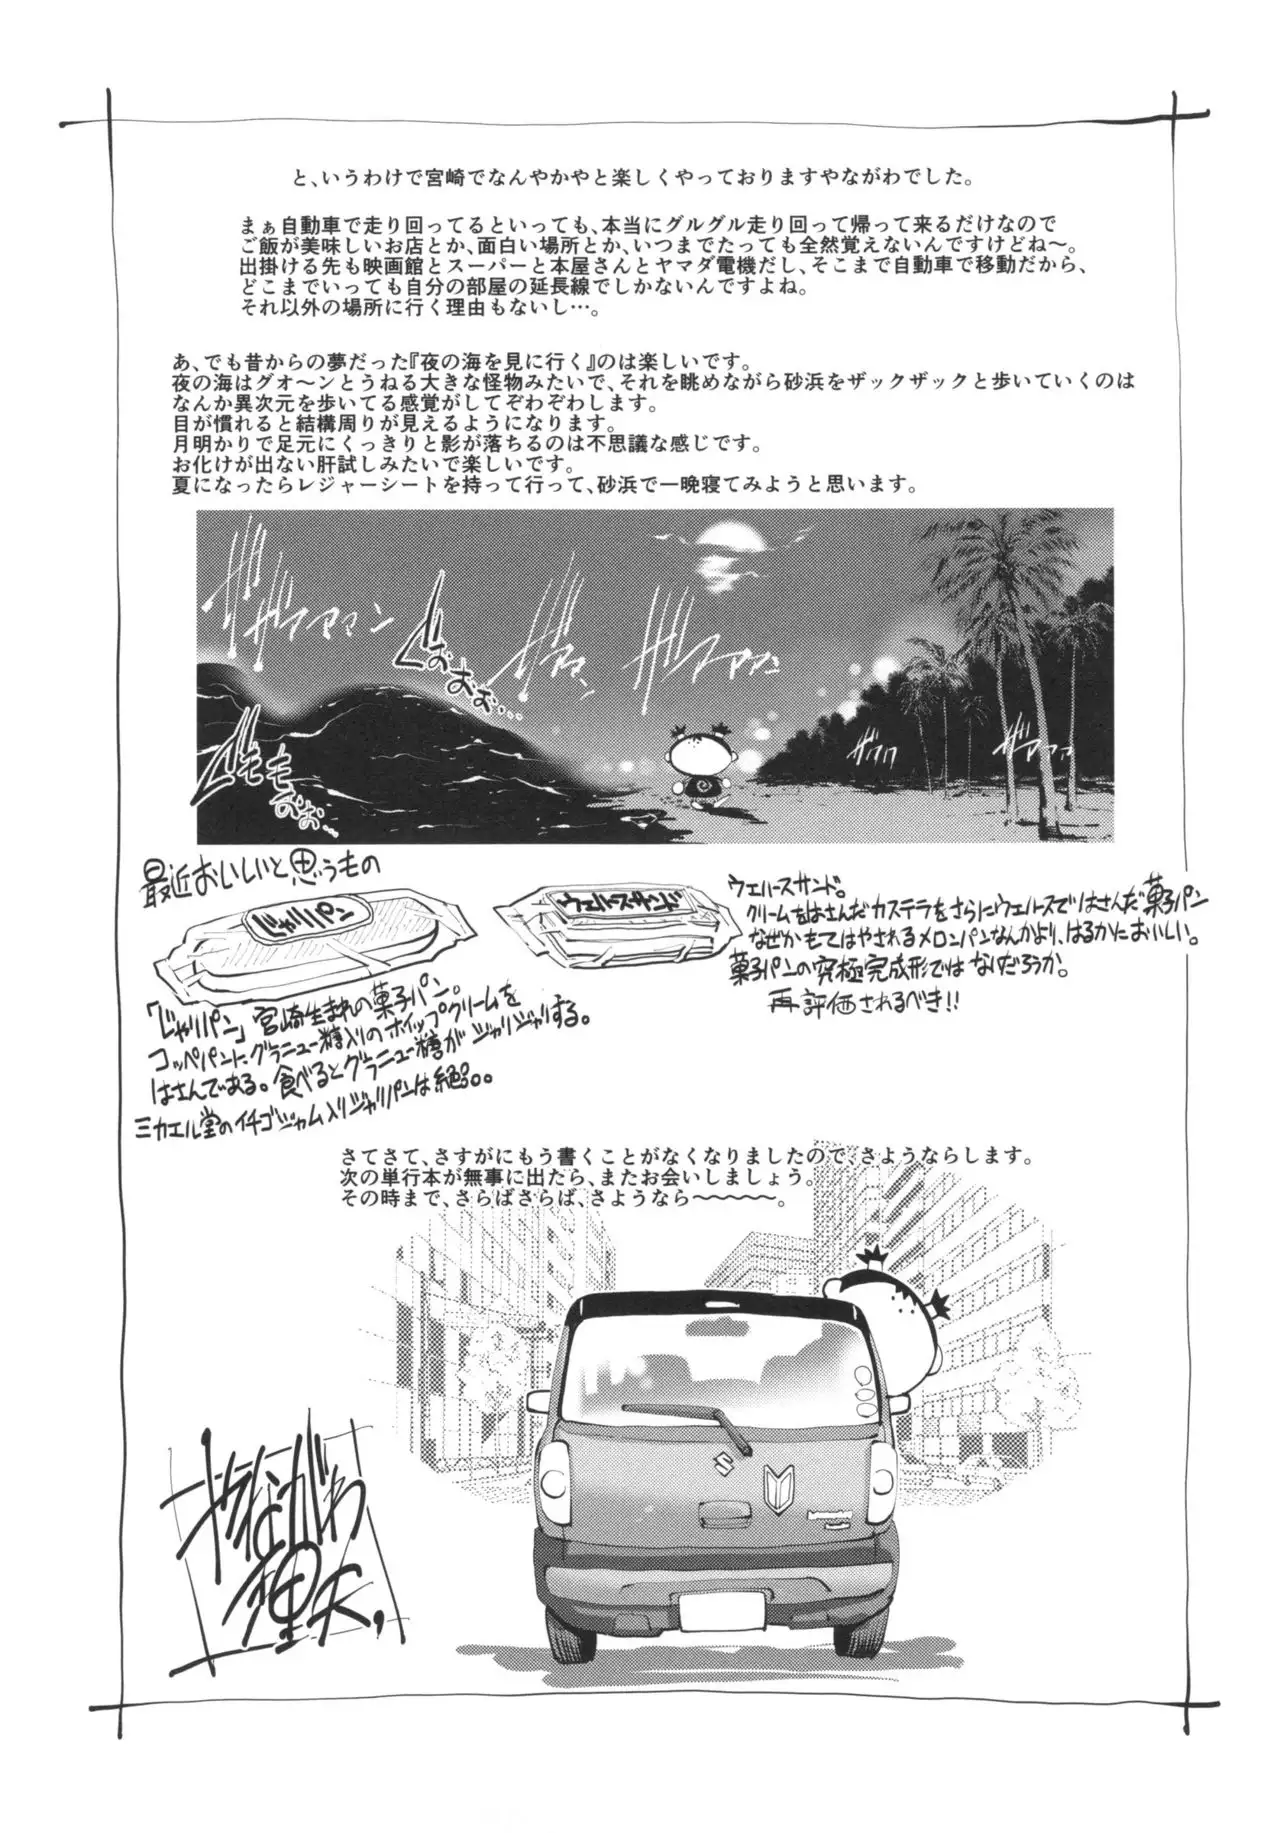 と、いうわけで宮崎でなんやかやと楽しくやっておりますやながわでした。
まぁ自動車で走り回ってるといっても、本当にグルグル走り回って帰って来るだけなので
ご飯が美味しいお店とか、面白い場所とか、いつまでたっても全然覚えないんですけどね〜。
出掛ける先も映画館とスーパーと本屋さんとヤマダ電機だし、そこまで自動車で移動だから、
どこまでいっても自分の部屋の延長線でしかないんですよね。
それ以外の場所に行く理由もないし…。
あ、でも昔からの夢だった『夜の海を見に行く』のは楽しいです。
夜の海はグオ〜ンとうねる大きな怪物みたいで、それを眺めながら砂浜をザックザックと歩いていくのは
なんか異次元を歩いてる感覚がしてぞわぞわします。
目が慣れると結構周りが見えるようになります。
月明かりで足元にくっきりと影が落ちるのは不思議な感じです。
お化けが出ない肝試しみたいで楽しいです。
夏になったらレジャーシートを持って行って、砂浜で一晩寝てみようと思います。
ザザァァァン
ぐおおお…
ザザァァン
ザザァァァン
ザザァァ
ザザァァァ
最近おいしいと思うもの
じゃりパン
「じゃりパン」宮崎生まれの菓子パン。
コッペパンにグラニュー糖入りのホイップクリームを
はさんである。食べるとグラニュー糖がジャリジャリする。
ミカエル堂のイチゴジャム入りジャリパンは絶品。
ウエハースサンド
ウエハースサンド。
クリームをはさんだカステラをさらにウエハースではさんだ菓子パン
なぜかもてはやされるメロンパンなんかより、はるかにおいしい。
菓子パンの究極完成形ではないだろうか。
再評価されるべき!!
さてさて、さすがにもう書くことがなくなりましたので、さようならします。
次の単行本が無事に出たら、またお会いしましょう。
その時まで、さらばさらば、さようなら〜〜〜〜。
やながわ
理央